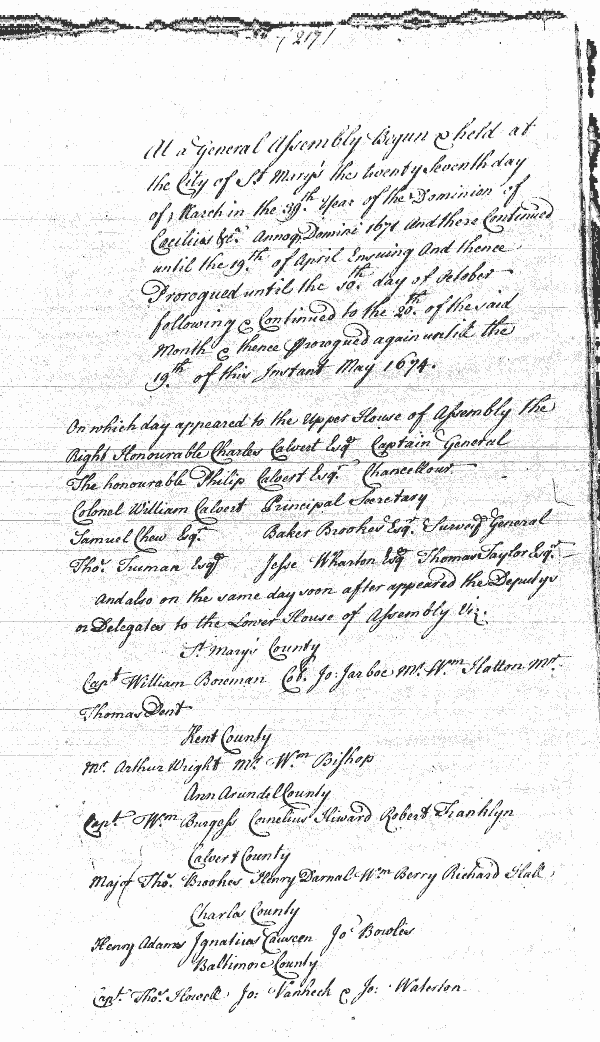 / 217 /
At a General Assembly Begun & held at
the City of St Mary's the twenty Seventh day
of March in the 39th Year of the Dominion of
Cecilius &ca. Annoq Domini 1671 And there Continued
until the 19th of April Ensuing And thence
Prorogued until the 10th day of October
following & Continued to the 20th of the said
Month & thence Prorogued again untill the
19th of this Instant May 1674.
On which day appeared to the Upper House of Assembly the
Right Honourable Charles Calvert Esqr Captain General
The honourable Philip Calvert Esqr. Chancellour
Colonel William Calvert Principal Secretary
Samuel Chew Esqr. Baker Brookes Esqr. Surveyr General
Thos. Truman Esqr Jesse Wharton Esqr Thomas Taylor Esqr.
And also on the same day soon after appeared the Deputys
or Delegates to the Lower House of Assembly Viz.
St Mary's County
Capt William Boreman Col. Jo: Jarboe Mr. Wm Hatton Mr.
Thomas Dent
Kent County
Mr. Arthur Wright Mr. Wm Bishop
Ann Arundel County
Capt. Wm Burgess Cornelius Howard Robert Franklyn
Calvert County
Major Tho. Brookes Henry Darnal Wm Berry Richard Hall
Charles County
Henry Adams Ignatius Causeen Jo: Bowles
Baltimore County
Capt. Thos. Howell Jo: Vanheck & Jo: Waterton